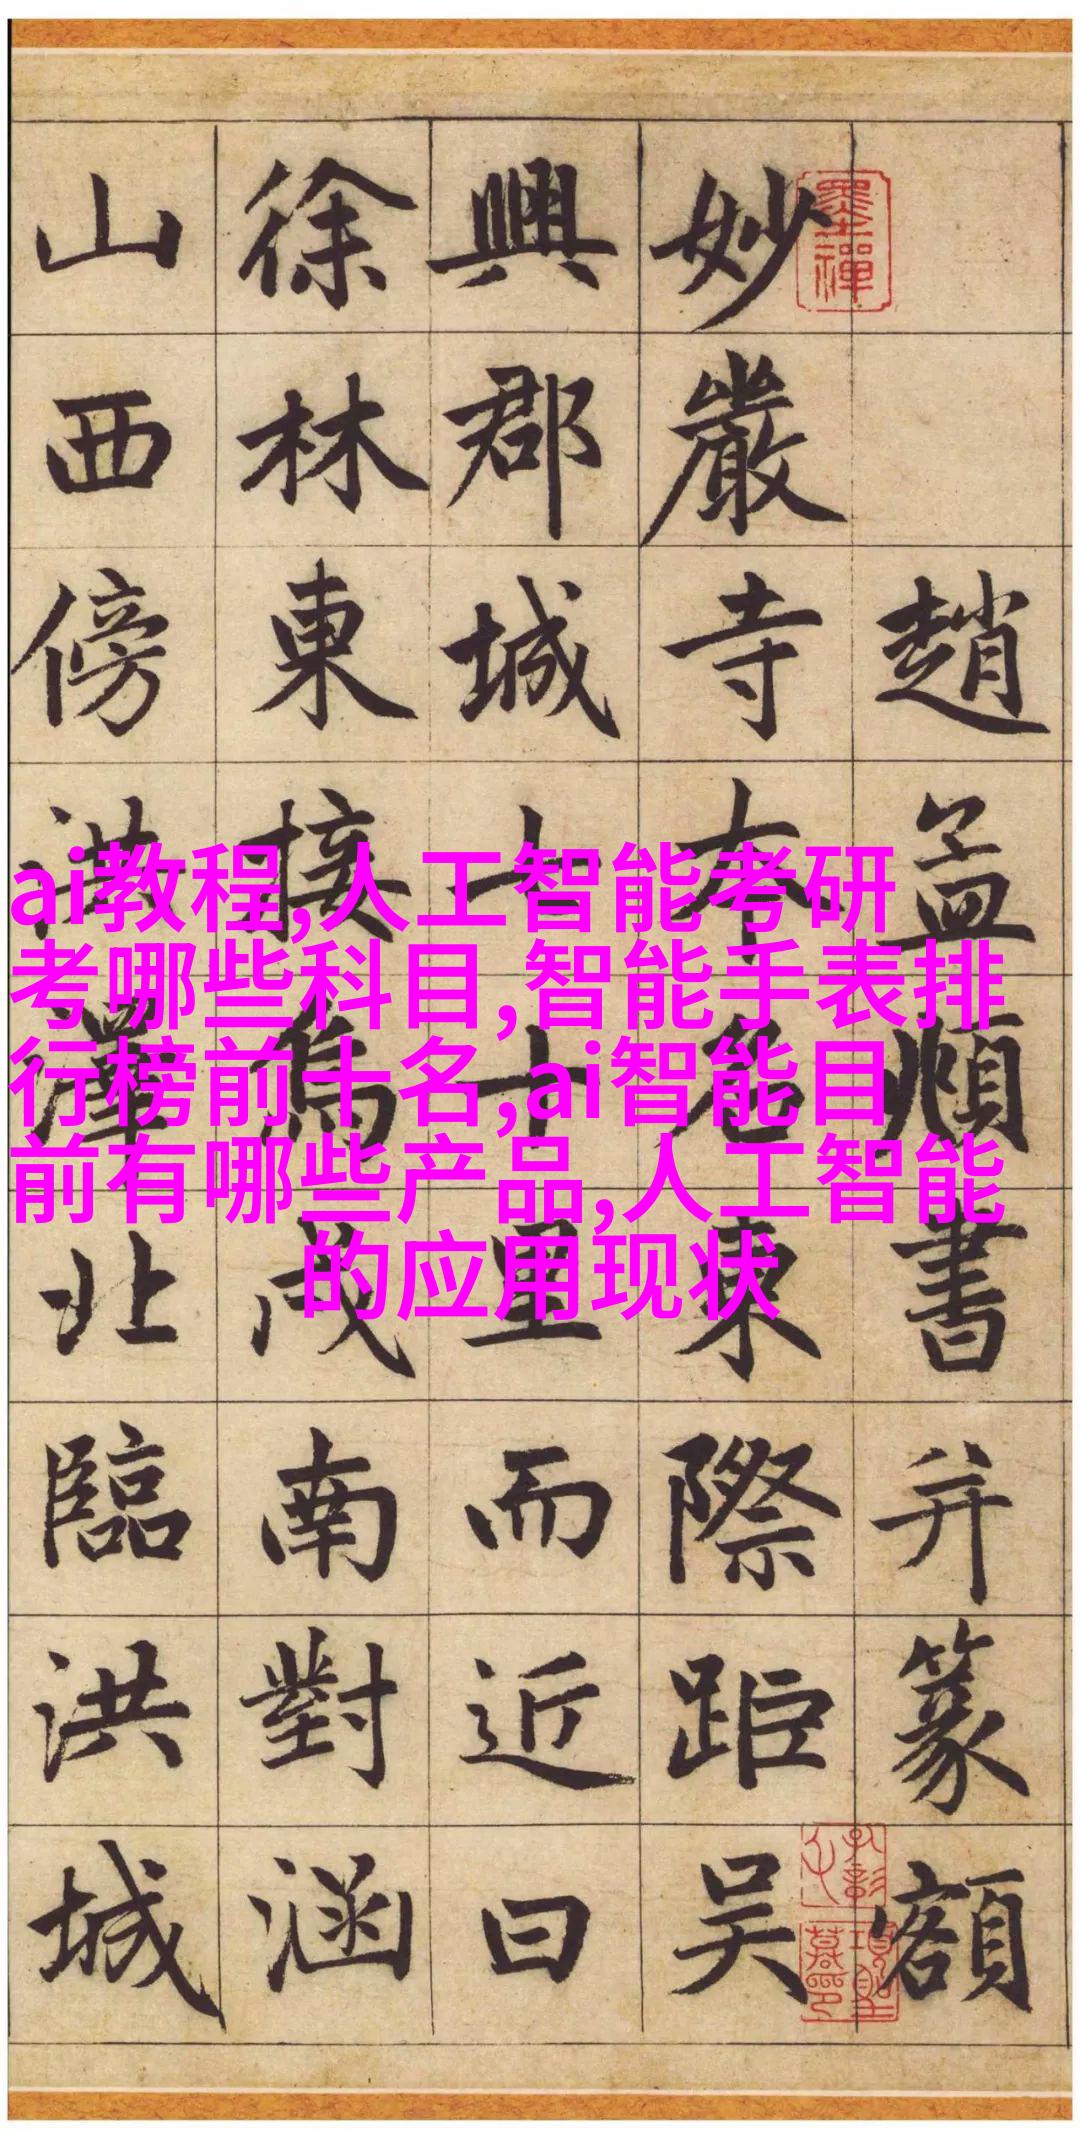 趙孟頫書并篆額
妙嚴寺本名東際距吳
興郡城七十里而近曰
徐林東接烏戍南對涵
山西傍洪澤北臨洪城
墨禪
ai教程,人工智能考研
考哪些科目,智能手表排
行榜前十名,ai智能目
前有哪些产品,人工智能
的应用现状